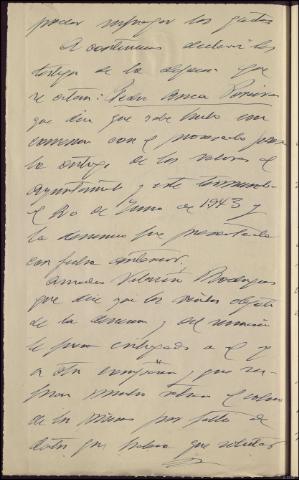 poder sufragar los gastos
A continuación declaró los
testigos de la defensa que
se citan: Pedro
que dice que sabe hubo un
convenio con el procesado para
la entrega de los valores al
Ayuntamiento y este terminaba
el 20 de Junio de 1943 y
la denuncia fue presentada
con fecha anterior.
Amadeo Rodriguez
que dice que los recibos objeto
de la denuncia y del sumario
le fueron entregados a el y
a otro compañero, que re-
 mucho retraso el cobro
de los mismos por falta de
datos que habia que solicitar